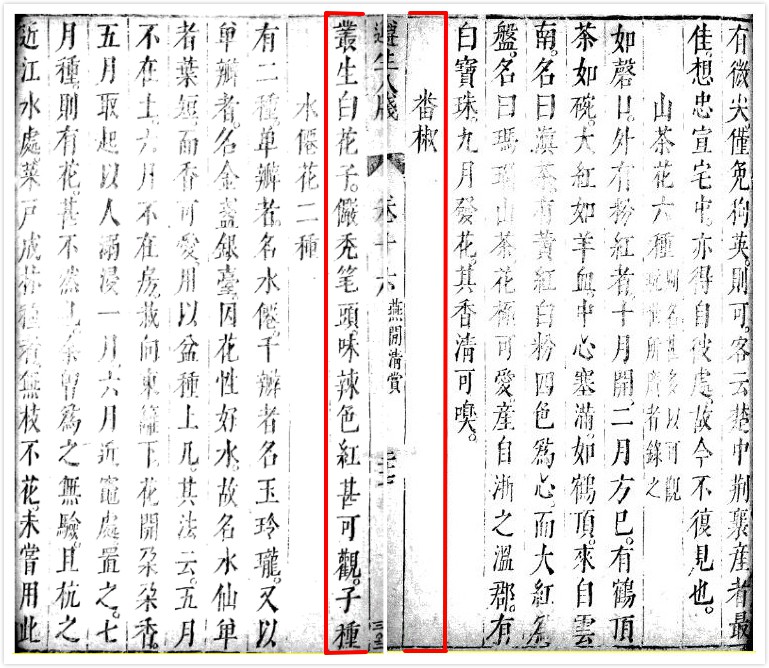 有微尖僅免狗英則可客云楚中荆襄産者最
佳想忠宣宅中亦得自彼處故今不復見也
山茶花六種
如磬口外有粉紅者十月開二月方巳有鶴頂
茶如碗大紅如羊血中心塞滿如鶴頂來自雲
南名曰滇茶有黃紅白粉四色爲心而大紅爲
盤名曰瑪瑙山茶花極可愛産自浙之溫郡有
白寶珠九月發花其香清可嗅
畨椒
遵生八牋
卷十六
燕閒清賞
叢生白花子儼禿笔頭味辣色紅甚可觀子種
水僊花二種
有二種单瓣者名水僊千瓣者名玉玲瓏又以
单瓣者名金盞銀臺因花性好水故名水仙单
者葉短而香可愛用以盆種上几其法云五月
不在土六月不在房栽向東籬下花開朶朶香
五月取起以人溺浸一月六月近竈處置之七
月種則有花甚不然也余曾爲之無驗且杭之
近江水處菜戸成林種者無枝不花未嘗用此